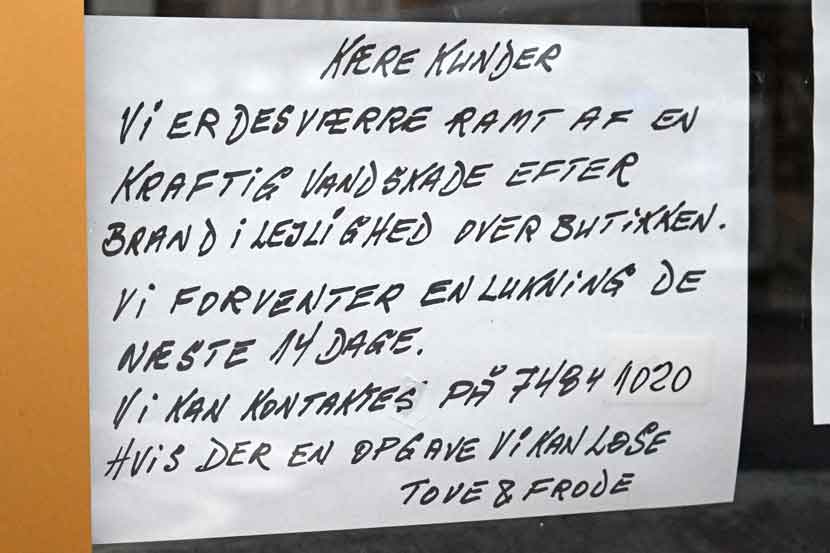 KÆRE KUNDER
VI ER DESVÆRRE RAMT AF EN
KRAFTIG VANDSKADE EFTER
BRAND I LEJLIGHED OVER BUTIKKEN.
VI FORVENTER EN LUKNING DE
NÆSTE 14 DAGE.
VI KAN KONTAKTES PÅ 7484 1020
HVIS DER EN OPGAVE VI KAN LØSE
TOVE & FRODE